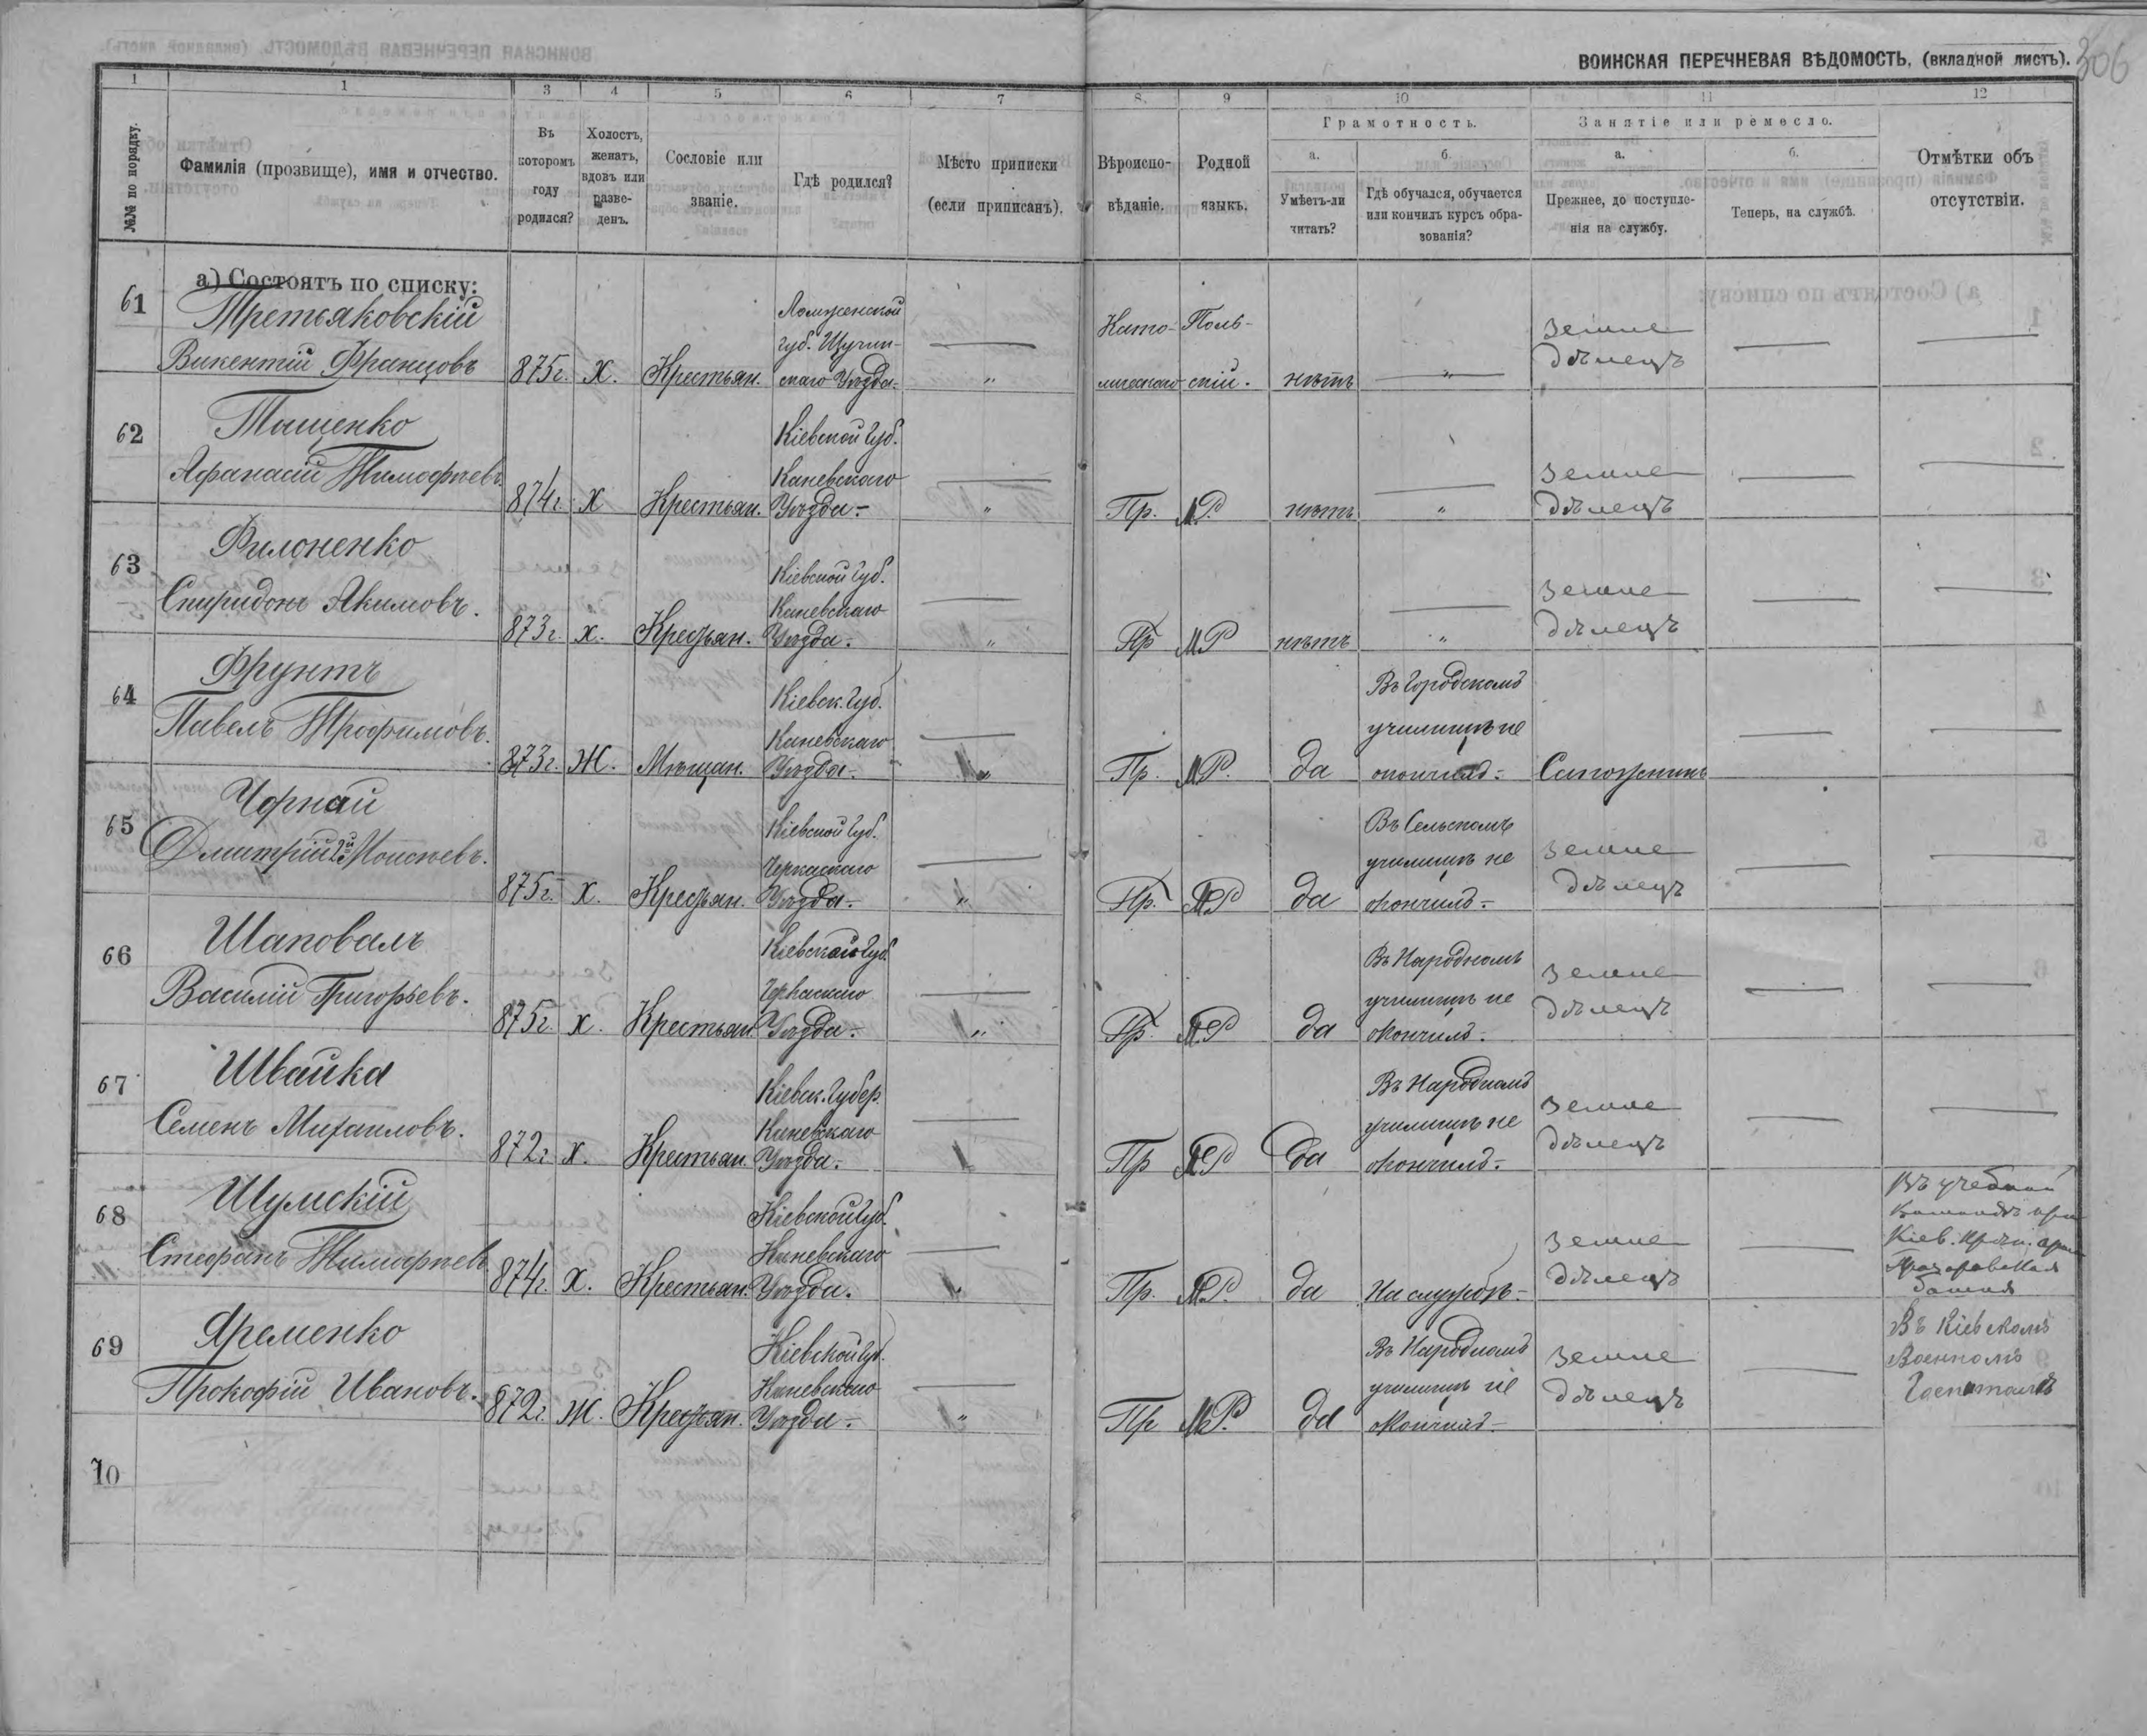 ВОИНСКАЯ ПЕРЕЧНЕВАЯ ВѢДОМОСТЬ, (вкладной листъ).
306
1 1 3 4 5 6 7 8. 9 10 11 12
№№ по порядку.
Фамилія (прозвище), имя и отчество.
Въ котором году родился?
Холостъ, женатъ, вдовъ или разве-денъ.
Сословіе или званіе.
Гдѣ родился?
Мѣсто приписки (если приписанъ).
Вѣроиспо-вѣданіе.
Родной языкъ.
Грамотность.
а. Умѣетъ-ли читать?
б. Гдѣ обучался, обучается или кончилъ курсъ обра-зованія?
Занятіе или ремесло.
а. Прежнее, до поступле-нія на службу.
б. Теперь, на службѣ.
Отмѣтки объ отсутствіи.
а) Состоятъ по списку:
61 Третьяковскій Викентій Францовъ 875г. Х. Крестьян. Ломженской губ. Щучин-скаго Уѣзда — " Като-лическаго Поль-скій. нѣтъ — " Земле дѣлецъ — —
62 Тыщенко Афанасій Тимофѣевъ 874г. Х Крестьян. Кіевской Губ. Каневскаго Уѣзда — " Пр. МР. нѣтъ — " Земле дѣлецъ — —
63 Филоненко Спиридонъ Якимовъ. 873г. х. Крестьян. Кіевской Губ. Каневскаго Уѣзда. — " Пр МР нѣтъ — " Земле дѣлецъ — —
64 Фрунтъ Павелъ Трофимовъ. 873г. Ж. Мѣщан. Кіевск. Губ. Каневскаго Уѣзда — " Пр. МР. да Въ Городскомъ училищѣ не окончилъ Сапожникъ — —
65 Чорнай Дмитрій 2й Моисѣевъ. 875г. х. Крестьян. Кіевской Губ. Черкаскаго Уѣзда. — " Пр. МР да Въ Сельскомъ училищѣ не окончилъ Земле дѣлецъ — —
66 Шаповалъ Василій Григорьевъ. 875г. х. Крестьян. Кіевской Губ. Черкаскаго Уѣзда. — " Пр. МР да Въ Народномъ училищѣ не окончилъ Земле дѣлецъ — —
67 Швайка Семенъ Михаиловъ. 872г. х. Крестьян. Кіевск. Губер. Каневскаго Уѣзда. — Пр МР да Въ Народномъ училищѣ не окончилъ Земле дѣлецъ — —
68 Шумскій Стефанъ Тимофѣевъ 874г. Х. Крестьян. Кіевской Губ. Каневскаго Уѣзда. — " Пр. МР. да На службѣ Земле дѣлецъ — Въ учебной Командѣ при Кіев.
69 Яременко Прокофій Ивановъ. 872г. Ж. Крестьян. Кіевской Губ. Каневскаго Уѣзда. — " Пр МР. да Въ Народномъ училищѣ не окончилъ Земле дѣлецъ — Въ Кіевскомъ Военномъ Госпиталѣ
70